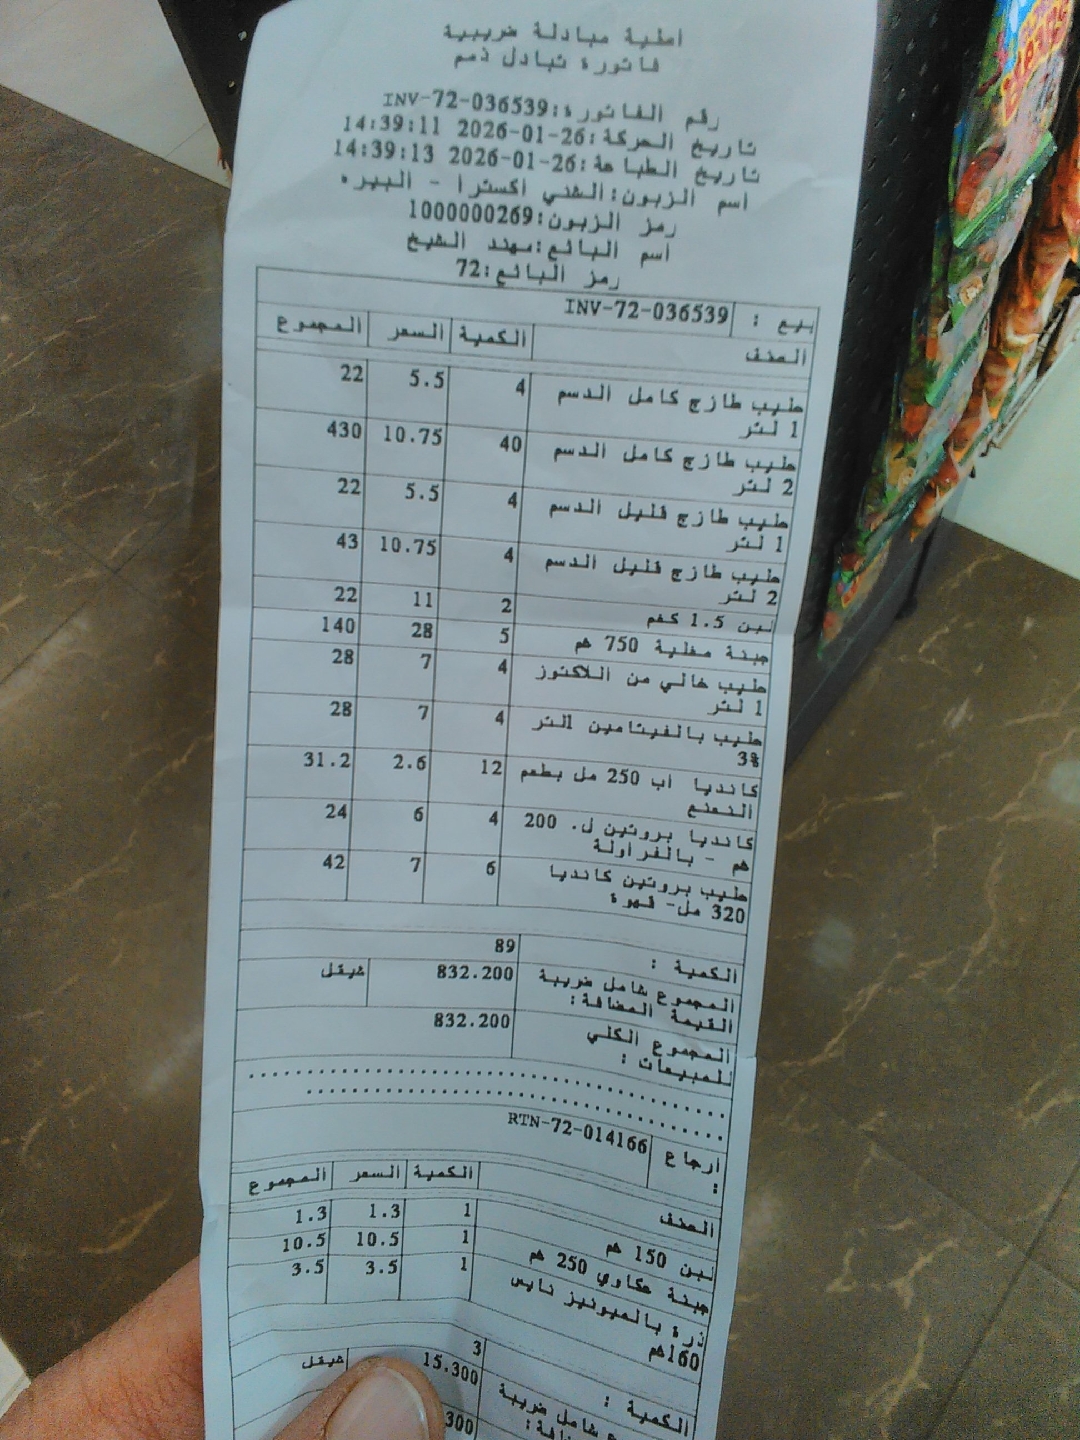 أصلية مبادلة ضريبية
فاتورة تبادل ذمم
رقم الفاتورة:INV-72-036539
تاريخ الحركة:26-01-2026 14:39:11
تاريخ الطباعة:26-01-2026 14:39:13
اسم الزبون:الشني اكسترا - البيره
رمز الزبون:1000000269
اسم البائع:مهند الشيخ
رمز البائع:72
بيع : INV-72-036539
الصنف الكمية السعر المجموع
حليب طازج كامل الدسم 4 5.5 22
1 لتر
حليب طازج كامل الدسم 40 10.75 430
2 لتر
حليب طازج قليل الدسم 4 5.5 22
1 لتر
حليب طازج قليل الدسم 4 10.75 43
2 لتر
لبن 1.5 كغم 2 11 22
جبنة مغلية 750 غم 5 28 140
حليب خالي من اللاكتوز 4 7 28
1 لتر
حليب بالفيتامين 1لتر 4 7 28
3%
كانديا اب 250 مل بطعم 12 2.6 31.2
النعنع
كانديا بروتين ل. 200 4 6 24
غم - بالفراولة
حليب بروتين كانديا 6 7 42
320 مل- قهوة
الكمية : 89
المجموع شامل ضريبة 832.200 شيقل
القيمة المضافة:
المجموع الكلي 832.200
للمبيعات :
ارجاع RTN-72-014166
:
الصنف الكمية السعر المجموع
لبن 150 غم 1 1.3 1.3
جبنة عكاوي 250 غم 1 10.5 10.5
ذرة بالميونيز نايس 1 3.5 3.5
160غم
الكمية : 3
شامل ضريبة 15.300 شيقل
300